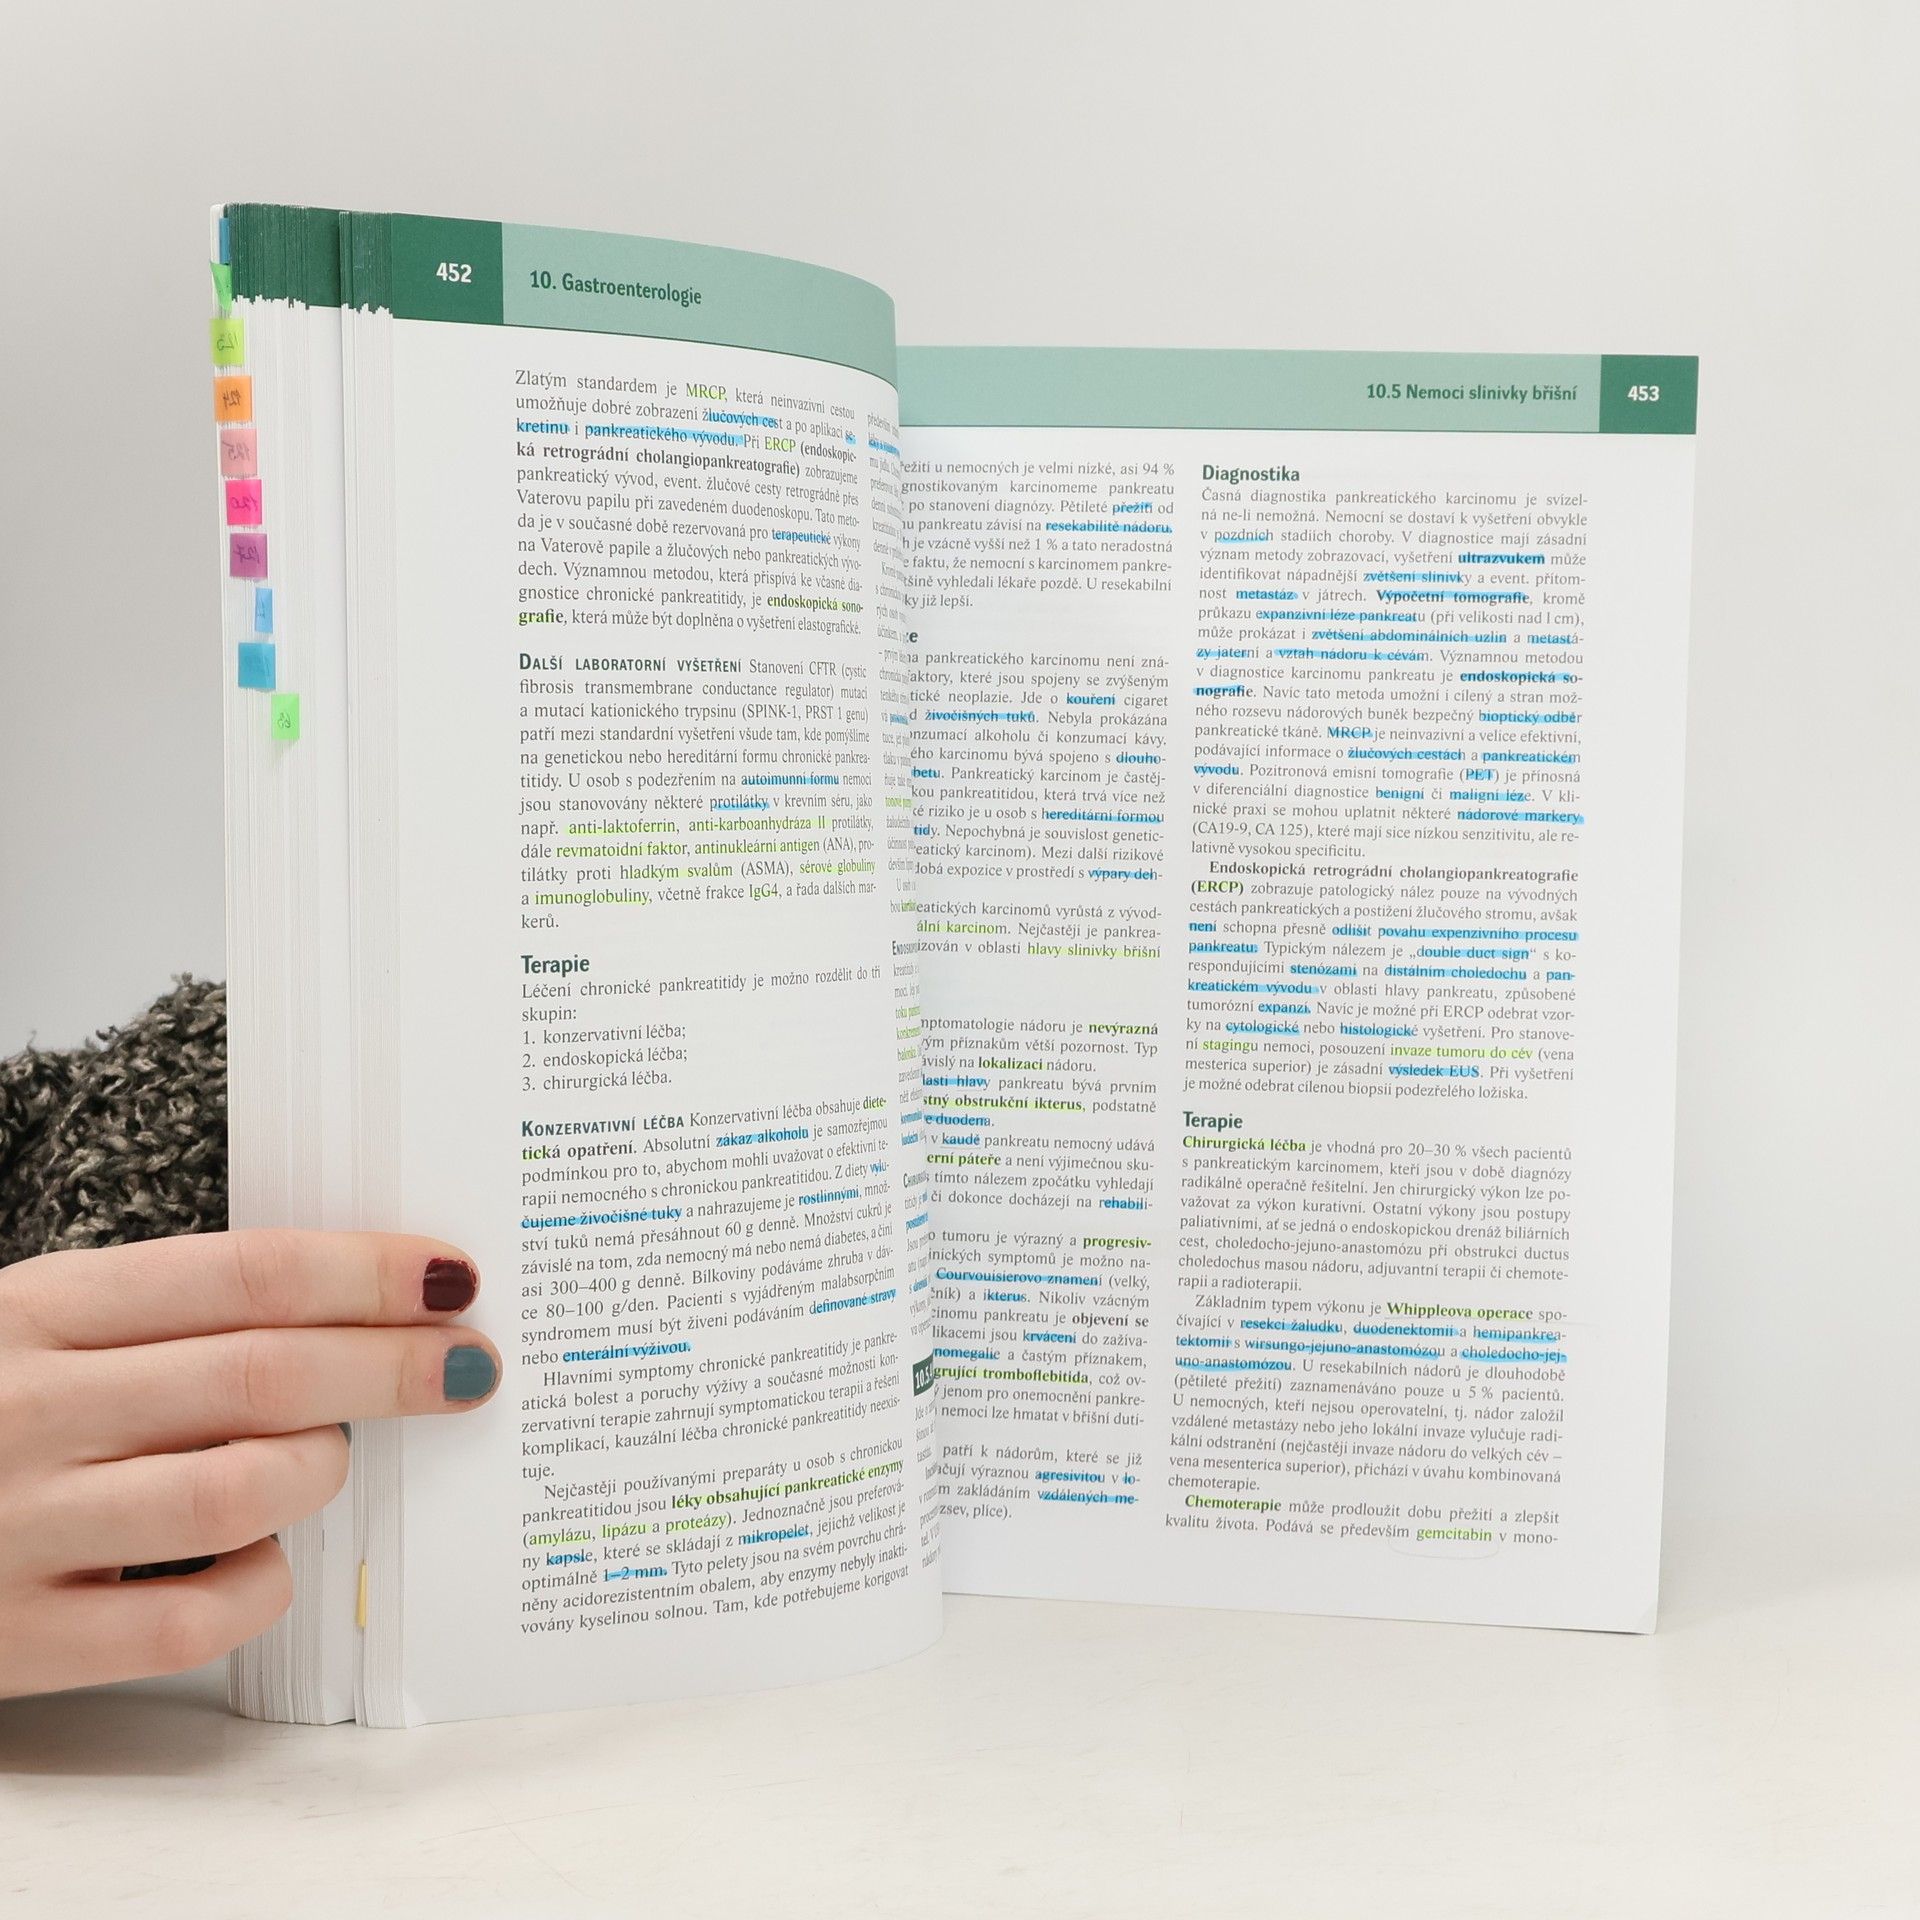 452
10. Gastroenterologie
Zlatým standardem je MRCP, která neinvazivní cestou
umožňuje dobré zobrazení žlučových cest a po aplikaci se-
kretinu i pankreatického vývodu. Při ERCP (endoskopic-
ká retrográdní cholangiopankreatografie) zobrazujeme
pankreatický vývod, event. žlučové cesty retrográdně přes
Vaterovu papilu při zavedeném duodenoskopu. Tato meto-
da je v současné době rezervovaná pro terapeutické výkony
na Vaterově papile a žlučových nebo pankreatických vývo-
dech. Významnou metodou, která přispívá ke včasné dia-
gnostice chronické pankreatitidy, je endoskopická sono-
grafie, která může být doplněna o vyšetření elastografické.
DALŠÍ LABORATORNÍ VYŠETŘENÍ Stanovení CFTR (cystic
fibrosis transmembrane conductance regulator) mutací
a mutací kationického trypsinu (SPINK-1, PRST 1 genu)
patří mezi standardní vyšetření všude tam, kde pomýšlíme
na genetickou nebo hereditární formu chronické pankrea-
titidy. U osob s podezřením na autoimunní formu nemoci
jsou stanovovány některé protilátky v krevním séru, jako
např. anti-laktoferrin, anti-karboanhydráza II protilátky,
dále revmatoidní faktor, antinukleární antigen (ANA), pro-
tilátky proti hladkým svalům (ASMA), sérové globuliny
a imunoglobuliny, včetně frakce IgG4, a řada dalších mar-
kerů.
Terapie
Léčení chronické pankreatitidy je možno rozdělit do tří
skupin:
1. konzervativní léčba;
2. endoskopická léčba;
3. chirurgická léčba.
KONZERVATIVNÍ LÉČBA Konzervativní léčba obsahuje diete-
tická opatření. Absolutní zákaz alkoholu je samozřejmou
podmínkou pro to, abychom mohli uvažovat o efektivní te-
rapii nemocného s chronickou pankreatitidou. Z diety vylu-
čujeme živočišné tuky a nahrazujeme je rostlinnými, množ-
ství tuků nemá přesáhnout 60 g denně. Množství cukrů je
závislé na tom, zda nemocný má nebo nemá diabetes, a činí
asi 300–400 g denně. Bílkoviny podáváme zhruba v dáv-
ce 80–100 g/den. Pacienti s vyjádřeným malabsorpčním
syndromem musí být živeni podáváním definované stravy
nebo enterální výživou.
Hlavními symptomy chronické pankreatitidy je pankre-
atická bolest a poruchy výživy a současné možnosti kon-
zervativní terapie zahrnují symptomatickou terapii a řešení
komplikací, kauzální léčba chronické pankreatitidy neexis-
tuje.
Nejčastěji používanými preparáty u osob s chronickou
pankreatitidou jsou léky obsahující pankreatické enzymy
(amylázu, lipázu a proteázy). Jednoznačně jsou preferová-
ny kapsle, které se skládají z mikropelet, jejichž velikost je
optimálně 1–2 mm. Tyto pelety jsou na svém povrchu chrá-
něny acidorezistentním obalem, aby enzymy nebyly inakti-
vovány kyselinou solnou. Tam, kde potřebujeme korigovat
10.5 Nemoci slinivky břišní
453
řežití u nemocných je velmi nízké, asi 94 %
gnostikovaným karcinomeme pankreatu
po stanovení diagnózy. Pětileté přežití od
pankreatu závisí na resekabilitě nádoru.
je vzácně vyšší než 1 % a tato neradostná
faktu, že nemocní s karcinomem pankre-
tšině vyhledali lékaře pozdě. U resekabilní
ky již lepší.
na pankreatického karcinomu není zná-
aktory, které jsou spojeny se zvýšeným
tické neoplazie. Jde o kouření cigaret
živočišných tuků. Nebyla prokázána
onzumací alkoholu či konzumací kávy.
ého karcinomu bývá spojeno s dlouho-
betu. Pankreatický karcinom je častěj-
kou pankreatitidou, která trvá více než
ké riziko je u osob s hereditární formou
tidy. Nepochybná je souvislost genetic-
eatický karcinom). Mezi další rizikové
dobá expozice v prostředí s výpary deh-
eatických karcinomů vyrůstá z vývod-
ální karcinom. Nejčastěji je pankrea-
izován v oblasti hlavy slinivky břišní
mptomatologie nádoru je nevýrazná
ým příznakům větší pozornost. Typ
ávislý na lokalizaci nádoru.
lasti hlavy pankreatu bývá prvním
stný obstrukční ikterus, podstatně
e duodena.
v kaudě pankreatu nemocný udává
erní páteře a není výjimečnou sku-
tímto nálezem zpočátku vyhledají
či dokonce docházejí na rehabili-
tumoru je výrazný a progresiv-
inických symptomů je možno na-
Courvouisierovo znamení (velký,
čník) a ikterus. Nikoliv vzácným
cinomu pankreatu je objevení se
likacemi jsou krvácení do zažíva-
nomegalie a častým příznakem,
grující tromboflebitida, což ov-
jenom pro onemocnění pankre-
nemoci lze hmatat v břišní duti-
patří k nádorům, které se již
ačují výraznou agresivitou v lo-
m zakládáním vzdálených me-
zsev, plíce).
Diagnostika
Časná diagnostika pankreatického karcinomu je svízel-
ná ne-li nemožná. Nemocní se dostaví k vyšetření obvykle
v pozdních stadiích choroby. V diagnostice mají zásadní
význam metody zobrazovací, vyšetření ultrazvukem může
identifikovat nápadnější zvětšení slinivky a event. přítom-
nost metastáz v játrech. Výpočetní tomografie, kromě
průkazu expanzivní léze pankreatu (při velikosti nad 1 cm),
může prokázat i zvětšení abdominálních uzlin a metastá-
zy jaterní a vztah nádoru k cévám. Významnou metodou
v diagnostice karcinomu pankreatu je endoskopická so-
nografie. Navíc tato metoda umožní i cílený a stran mož-
ného rozsevu nádorových buněk bezpečný bioptický odběr
pankreatické tkáně. MRCP je neinvazivní a velice efektivní,
podávající informace o žlučových cestách a pankreatickém
vývodu. Pozitronová emisní tomografie (PET) je přínosná
v diferenciální diagnostice benigní či maligní léze. V kli-
nické praxi se mohou uplatnit některé nádorové markery
(CA19-9, CA 125), které mají sice nízkou senzitivitu, ale re-
lativně vysokou specificitu.
Endoskopická retrográdní cholangiopankreatografie
(ERCP) zobrazuje patologický nález pouze na vývodných
cestách pankreatických a postižení žlučového stromu, avšak
není schopna přesně odlišit povahu expenzivního procesu
pankreatu. Typickým nálezem je „double duct sign“ s ko-
respondujícími stenózami na distálním choledochu a pan-
kreatickém vývodu v oblasti hlavy pankreatu, způsobené
tumorózní expanzí. Navíc je možné při ERCP odebrat vzor-
ky na cytologické nebo histologické vyšetření. Pro stanove-
ní stagingu nemoci, posouzení invaze tumoru do cév (vena
mesterica superior) je zásadní výsledek EUS. Při vyšetření
je možné odebrat cílenou biopsii podezřelého ložiska.
Terapie
Chirurgická léčba je vhodná pro 20–30 % všech pacientů
s pankreatickým karcinomem, kteří jsou v době diagnózy
radikálně operačně řešitelní. Jen chirurgický výkon lze po-
važovat za výkon kurativní. Ostatní výkony jsou postupy
paliativními, ať se jedná o endoskopickou drenáž biliárních
cest, choledocho-jejuno-anastomózu při obstrukci ductus
choledochus masou nádoru, adjuvantní terapii či chemote-
rapii a radioterapii.
Základním typem výkonu je Whippleova operace spo-
čívající v resekci žaludku, duodenektomii a hemipankrea-
tektomii s wirsungo-jejuno-anastomózou a choledocho-jej-
uno-anastomózou. U resekabilních nádorů je dlouhodobé
(pětileté přežití) zaznamenáváno pouze u 5 % pacientů.
U nemocných, kteří nejsou operovatelní, tj. nádor založil
vzdálené metastázy nebo jeho lokální invaze vylučuje radi-
kální odstranění (nejčastěji invaze nádoru do velkých cév –
vena mesenterica superior), přichází v úvahu kombinovaná
chemoterapie.
Chemoterapie může prodloužit dobu přežití a zlepšit
kvalitu života. Podává se především gemcitabin v mono-